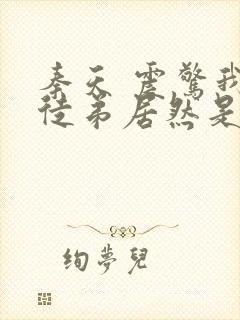 秦天 震驚我
徒弟居然是
絢夢兒